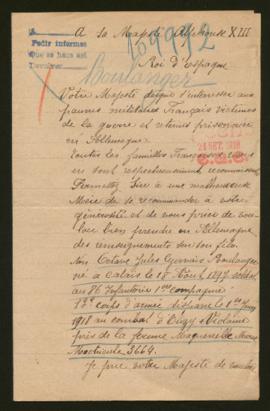 A Sa Majesté Alphonse XIII
Roi d'Espagne
Pedir informes
Que se haga asi
159992
Boulanger
Votre Majesté daigne s'intéresser aux
pauvres militaires Français victimes
de la guerre et retenus prisonniers
en Allemagne
toutes les familles Françaises
en sont respectueusement reconnaissantes
24 SET. 1918
Permettez Sire à une malheureuse
Mère de se recommander à votre
générosité et de vous prier de vou-
loir bien prendre en Allemagne
des renseignements sur son fils
Octave Jules Gervais Boulanger
né à Calais le 18 Août 1897 soldat
au 86 Infanterie 1ère compagnie
13e corps d'armée disparu le 1er
1918 au combat d'
près de la ferme
Matricule 3664.
Je prie votre Majesté de